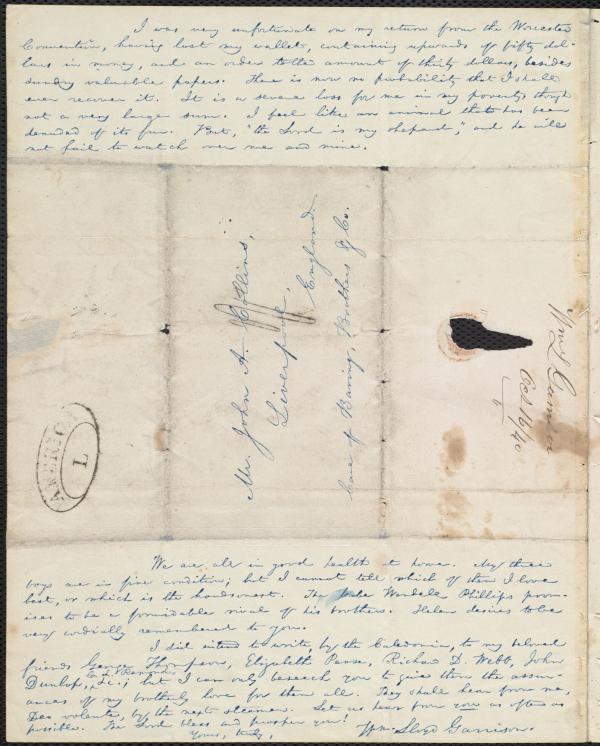 I was very unfortunate on my return from the Worcester
Convention, having lost my wallet, containing upwards of fifty dol-
lars in money, and an order to the amount of thirty dollars, besides
sundry valuable papers. There is now no probability that I shall
ever recover it. It is a severe loss for me in my poverty, though
not a very large sum. I feel like an animal that has been
denuded of its fur. But, "the Lord is my shepherd," and he will
not fail to watch over me and mine.
Mr. John A. Collins,
Liverpool,
England.
Care of Baring, Brothers & Co.
AMERICA
L
Oct 16/40
We are all in good health at home. My three
boys are in fine condition; but I cannot tell which of them I love
best, or which is the handsomest. The Wendell Phillips prom-
ises to be a formidable rival of his brothers. Helen desires to be
very cordially remembered to you.
I did intend to write, by the Caledonia, to my beloved
friends George Thompson, Elizabeth Pease, Richard D. Webb, John
Dunlop, &c.; but I can only beseech you to give them the assur-
ances of my brotherly love for them all. They shall hear from me,
Deo volente, by the next steamer. Let us hear from you as often as
possible. The Lord bless and prosper you!
Yours, truly,
Wm. Lloyd Garrison.